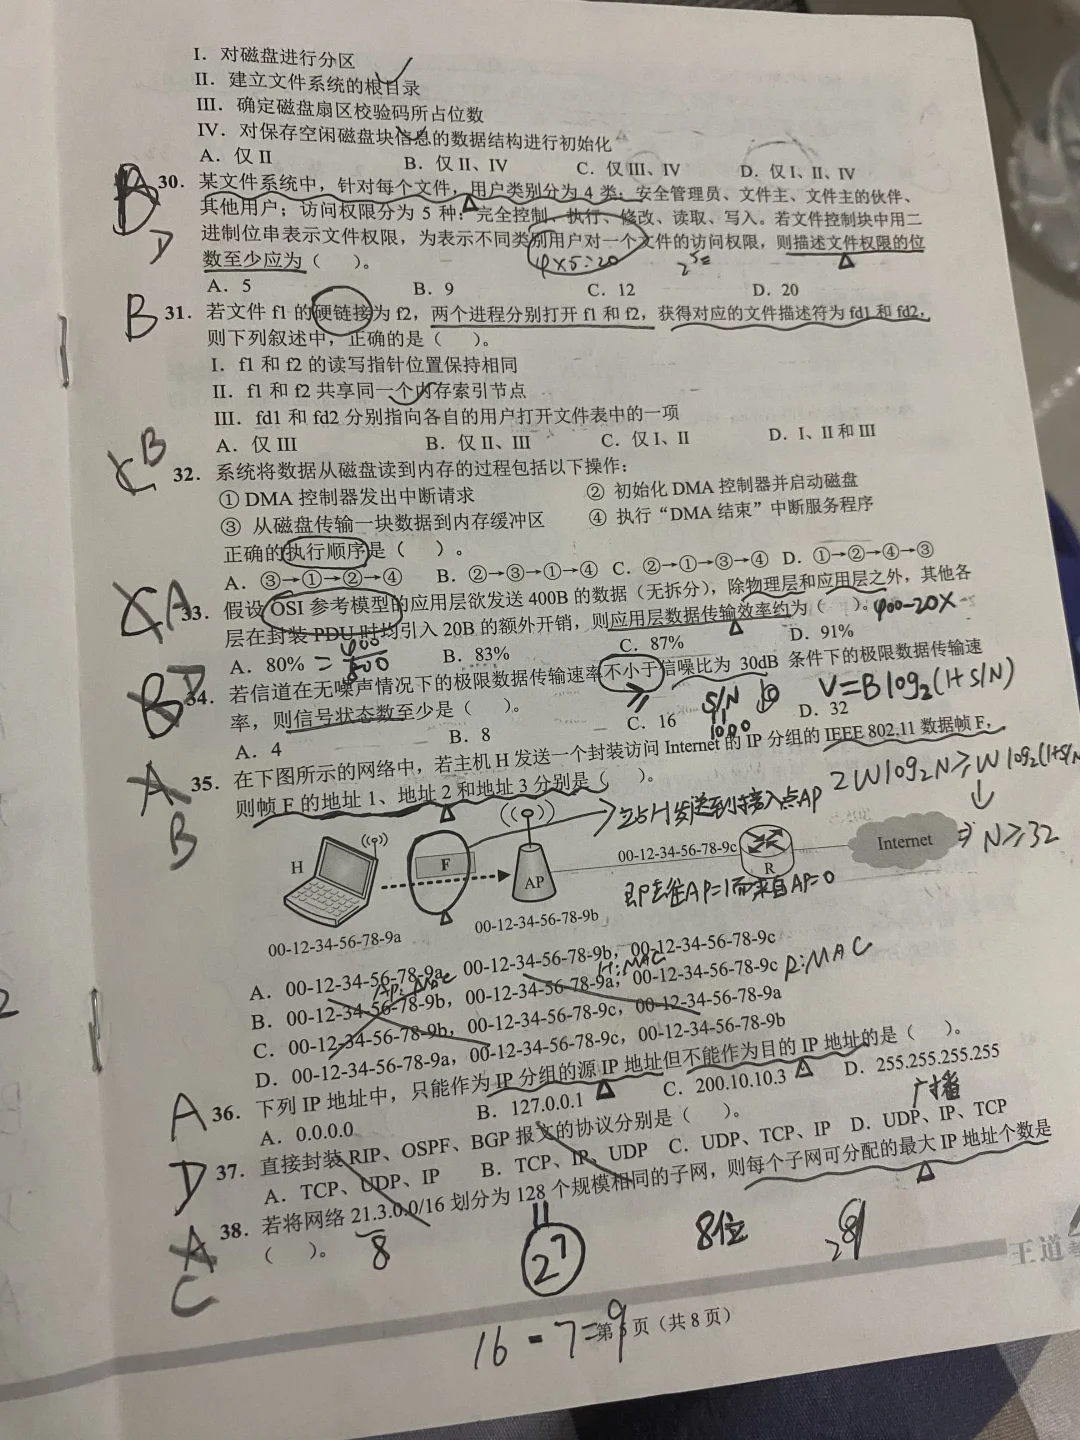 I. 对磁盘进行分区
II. 建立文件系统的根目录
III. 确定磁盘扇区校验码所占位数
IV. 对保存空闲磁盘块信息的数据结构进行初始化
A. 仅 II B. 仅 II、IV C. 仅 III、IV D. 仅 I、II、IV
D
30. 某文件系统中，针对每个文件，用户类别分为 4 类：安全管理员、文件主、文件主的伙伴、
其他用户；访问权限分为 5 种：完全控制、执行、修改、读取、写入。若文件控制块中用二
进制位串表示文件权限，为表示不同类别用户对一个文件的访问权限，则描述文件权限的位
数至少应为（ ）。
4×5=20
2⁵=
A. 5 B. 9 C. 12 D. 20
B
31. 若文件 f1 的硬链接为 f2，两个进程分别打开 f1 和 f2，获得对应的文件描述符为 fd1 和 fd2，
则下列叙述中，正确的是（ ）。
I. f1 和 f2 的读写指针位置保持相同
II. f1 和 f2 共享同一个内存索引节点
III. fd1 和 fd2 分别指向各自的用户打开文件表中的一项
A. 仅 III B. 仅 II、III C. 仅 I、II D. I、II 和 III
C B
32. 系统将数据从磁盘读到内存的过程包括以下操作：
① DMA 控制器发出中断请求 ② 初始化 DMA 控制器并启动磁盘
③ 从磁盘传输一块数据到内存缓冲区 ④ 执行“DMA 结束”中断服务程序
正确的执行顺序是（ ）。
A. ③→①→②→④ B. ②→③→①→④ C. ②→①→③→④ D. ①→②→④→③
C A
33. 假设 OSI 参考模型的应用层欲发送 400B 的数据（无拆分），除物理层和应用层之外，其他各
层在封装 PDU 时均引入 20B 的额外开销，则应用层数据传输效率约为（ ）。 400-20×
A. 80% B. 83% C. 87% D. 91%
= 400/500
B D
34. 若信道在无噪声情况下的极限数据传输速率不小于信噪比为 30dB 条件下的极限数据传输速
率，则信号状态数至少是（ ）。
≥ S/N 1000 V=Blog₂(1+S/N)
A. 4 B. 8 C. 16 D. 32
A
B
35. 在下图所示的网络中，若主机 H 发送一个封装访问 Internet 的 IP 分组的 IEEE 802.11 数据帧 F，
则帧 F 的地址 1、地址 2 和地址 3 分别是（ ）。
2Wlog₂N≥Wlog₂(1+S/N
发送到接入点AP
⇒ N≥32
H F AP R Internet
00-12-34-56-78-9c
去往AP=1而来自AP=0
00-12-34-56-78-9a 00-12-34-56-78-9b
A. 00-12-34-56-78-9a，00-12-34-56-78-9b，00-12-34-56-78-9c
AP:MAC H:MAC R:MAC
B. 00-12-34-56-78-9b，00-12-34-56-78-9a，00-12-34-56-78-9c
C. 00-12-34-56-78-9b，00-12-34-56-78-9c，00-12-34-56-78-9a
D. 00-12-34-56-78-9a，00-12-34-56-78-9c，00-12-34-56-78-9b
A
36. 下列 IP 地址中，只能作为 IP 分组的源 IP 地址但不能作为目的 IP 地址的是（ ）。
A. 0.0.0.0 B. 127.0.0.1 C. 200.10.10.3 D. 255.255.255.255
广播
D
37. 直接封装 RIP、OSPF、BGP 报文的协议分别是（ ）。
A. TCP、UDP、IP B. TCP、IP、UDP C. UDP、TCP、IP D. UDP、IP、TCP
A
C
38. 若将网络 21.3.0.0/16 划分为 128 个规模相同的子网，则每个子网可分配的最大 IP 地址个数是
（ ）。
8 2⁷ 8位
王道
16-7=9
第 5 页（共 8 页）